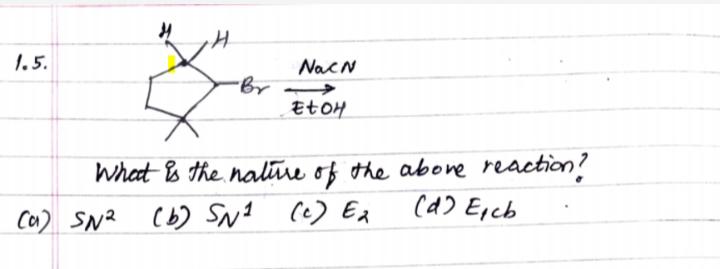 H H
1.5.
NaCN
Br
EtOH
What is the nature of the above reaction?
(a) SN² (b) SN¹ (c) E₂ (d) E₁cb